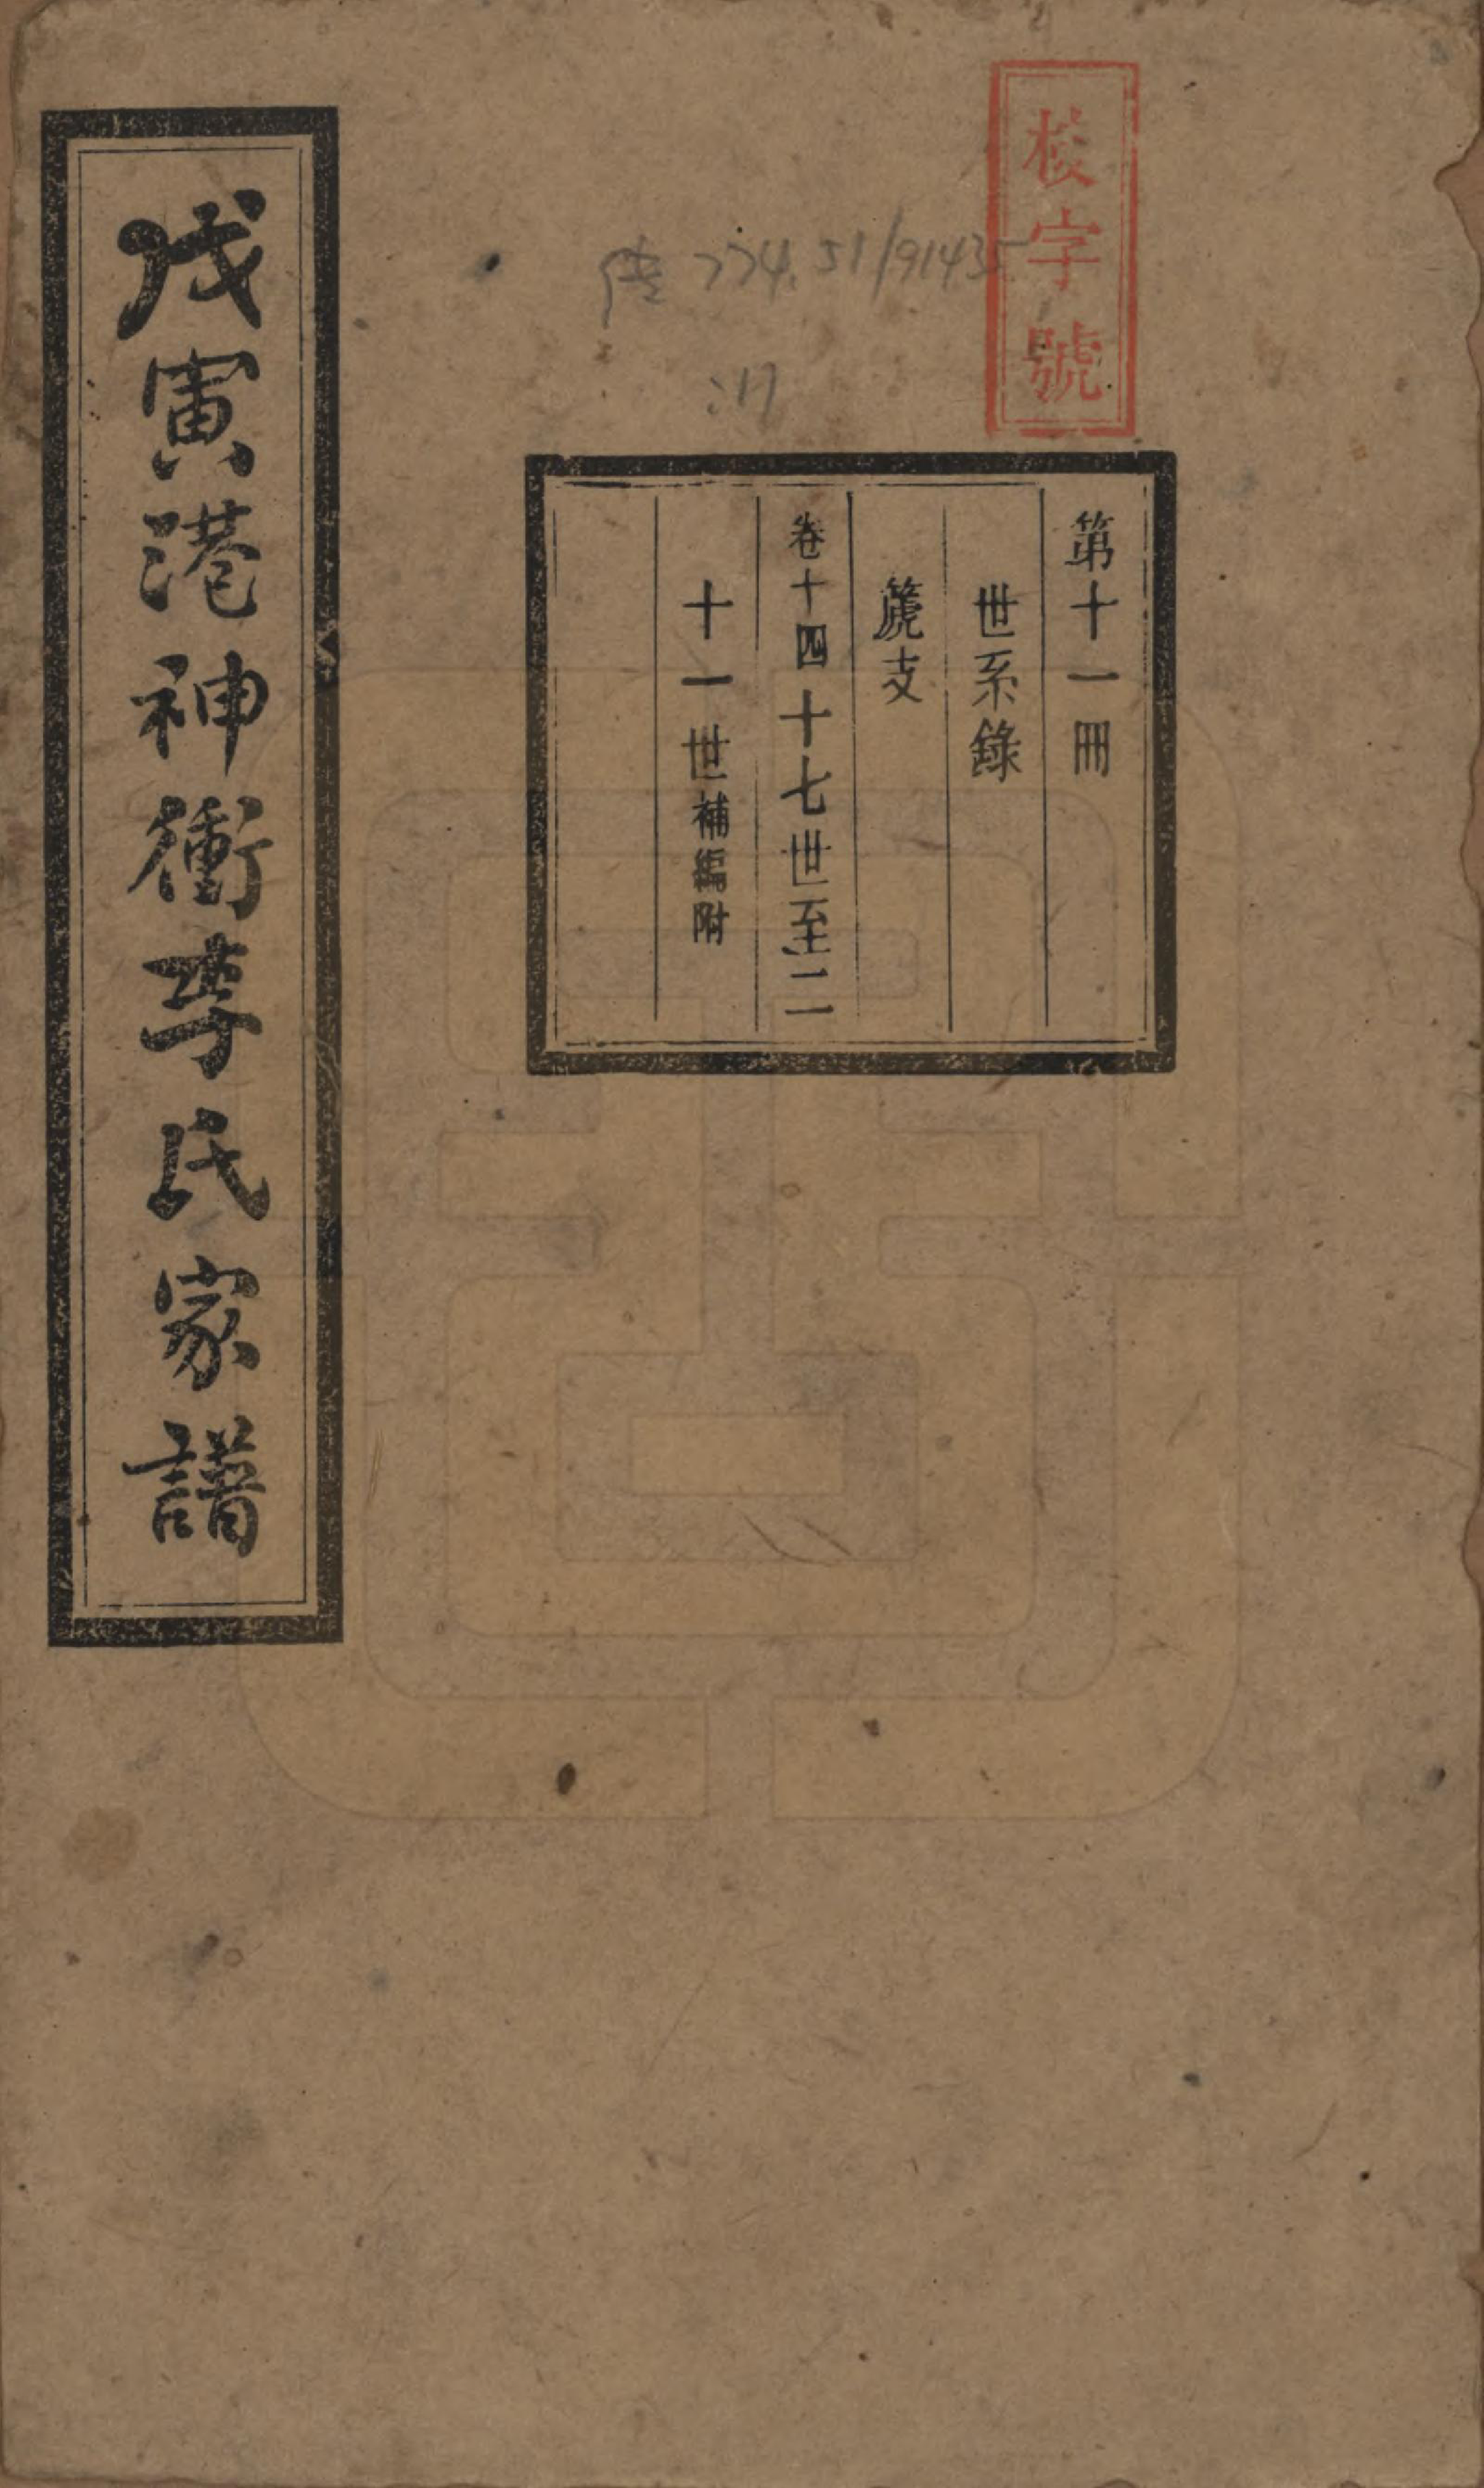 字號
774.51/91435
:11
第十一冊
世系錄
篪支
卷十四十七世至二
十一世補編附
戊寅港神衝李氏家譜